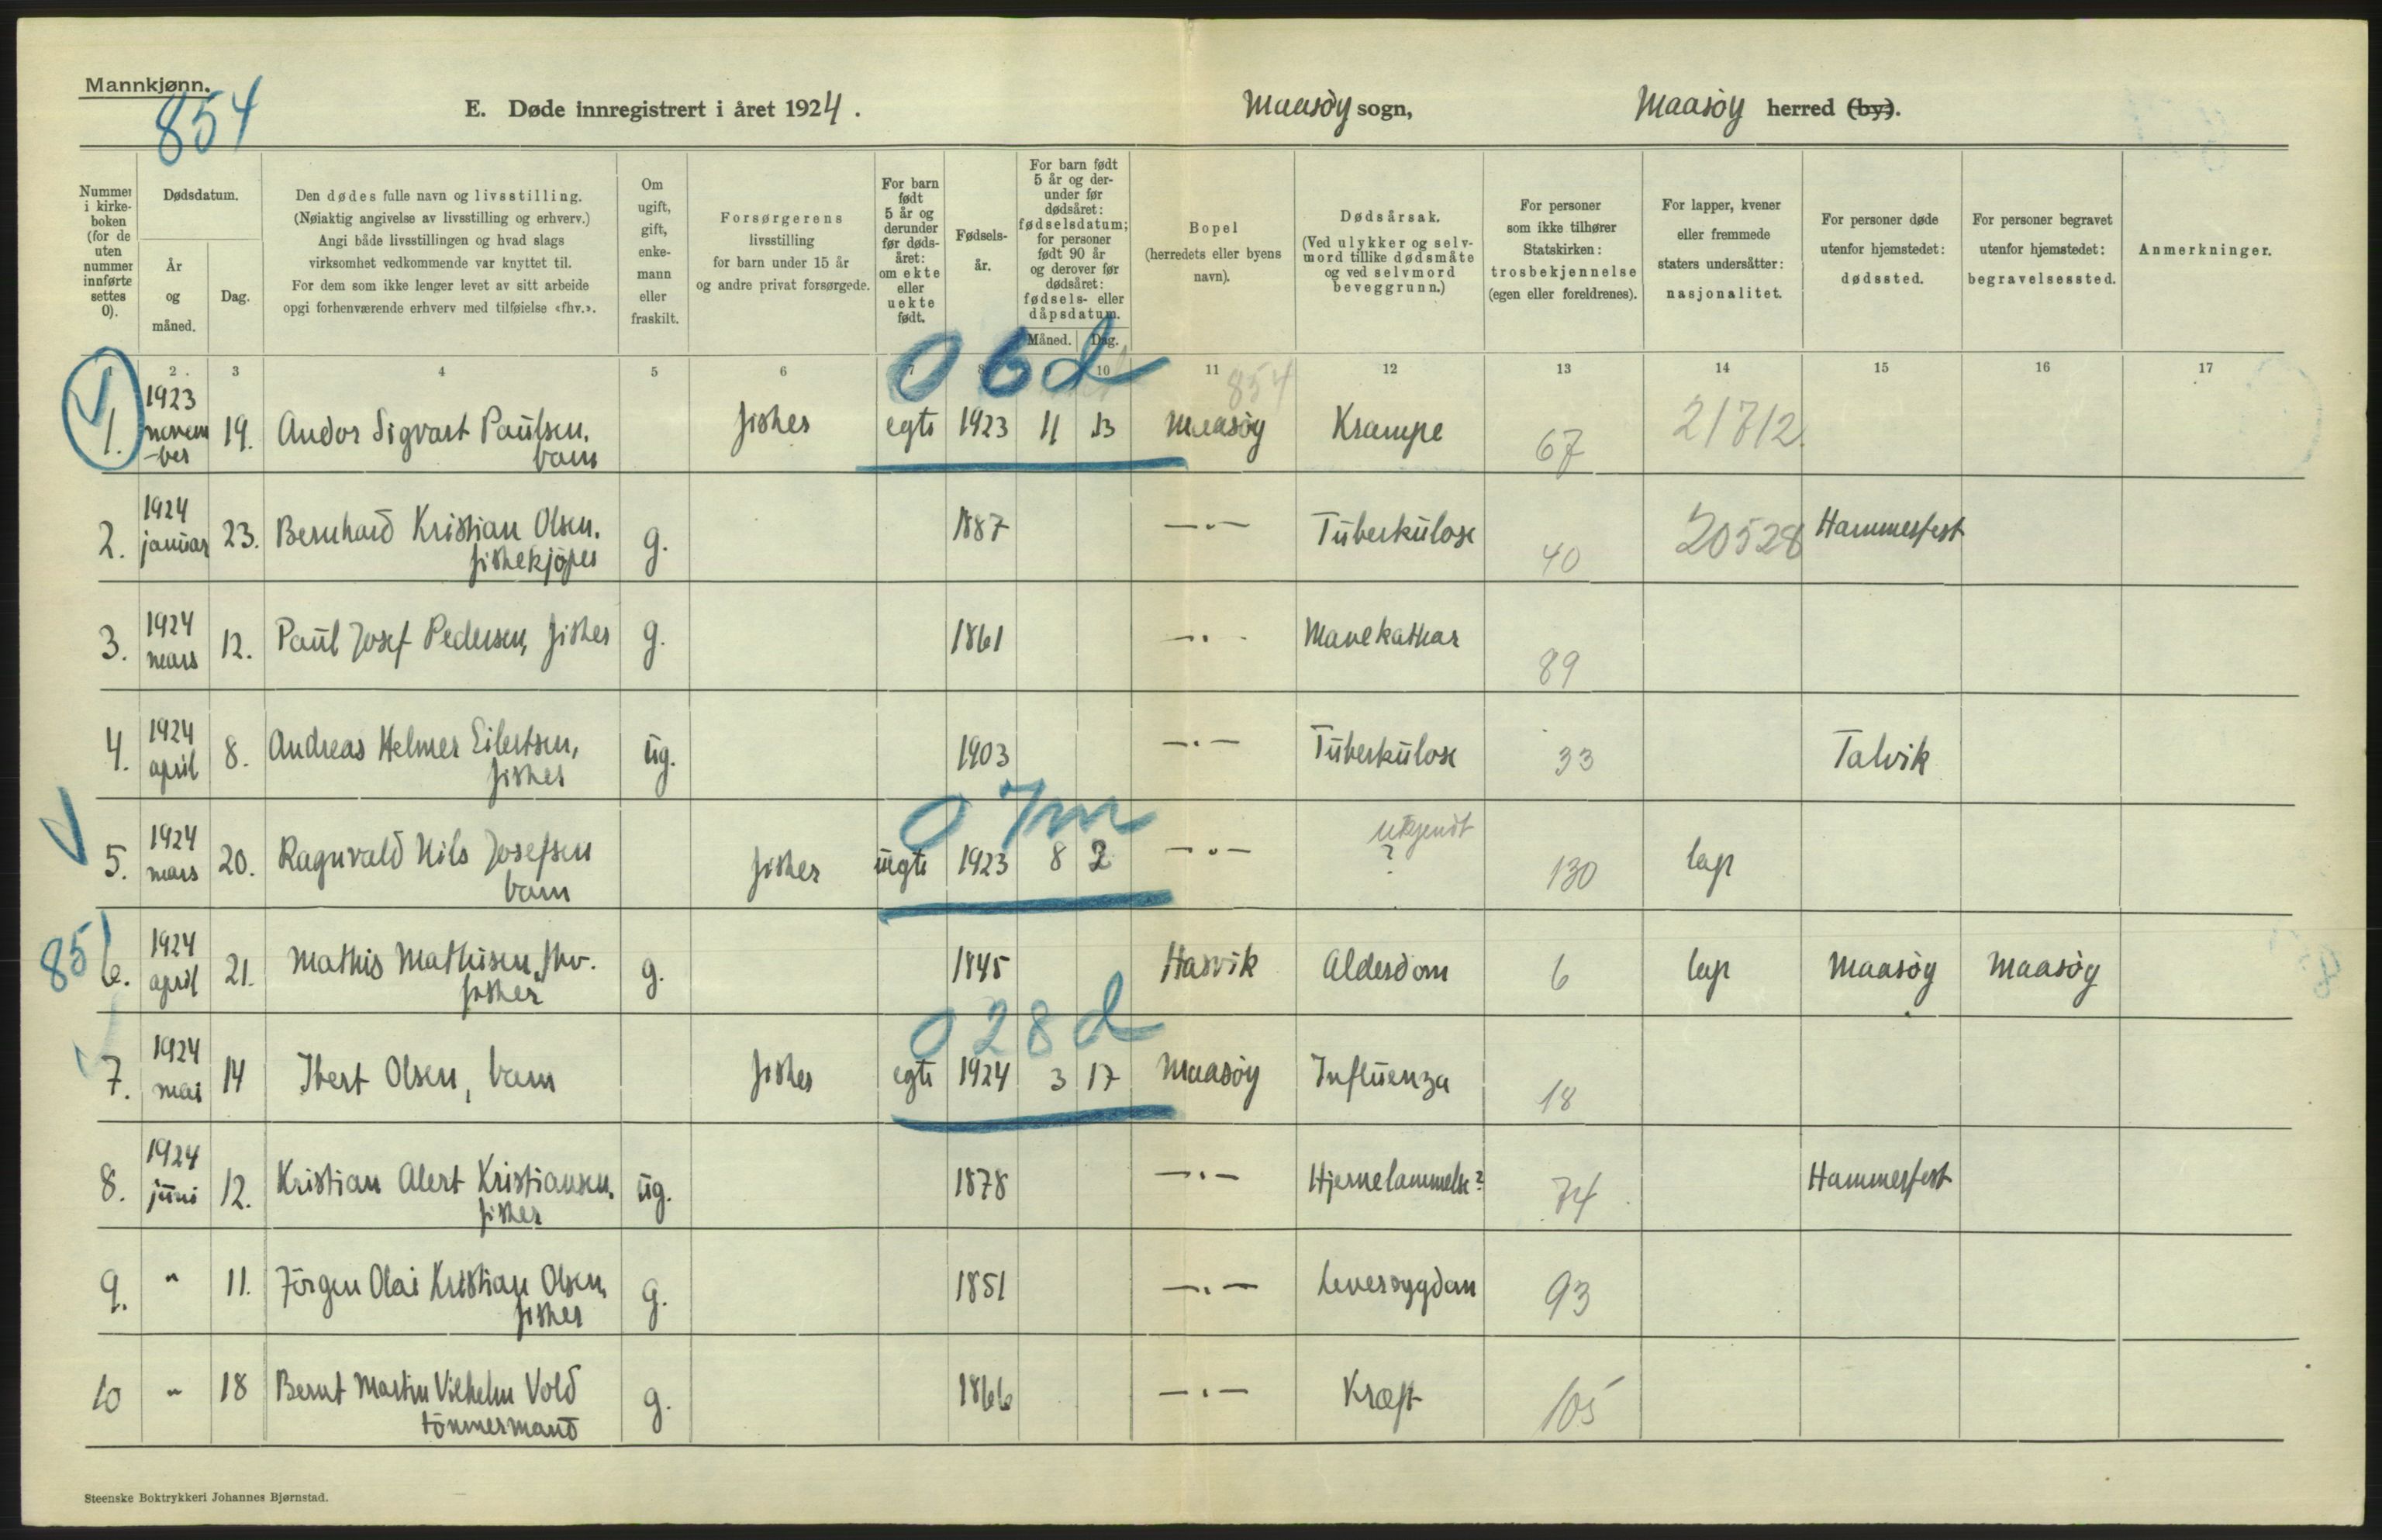 Mannkjønn.
854
E. Døde innregistrert i året 1924.
Maasöy sogn,
Maasöy herred (by).
Nummer
i kirke-
boken
(for de
uten
nummer
innførte
settes
0).
Dødsdatum.
År
og
måned.
Dag.
Den dødes fulle navn og livsstilling.
(Nøiaktig angivelse av livsstilling og erhverv.)
Angi både livsstillingen og hvad slags
virksomhet vedkommende var knyttet til.
For dem som ikke lenger levet av sitt arbeide
opgi forhenværende erhverv med tilføielse «fhv.».
Om
ugift,
gift,
enke-
mann
eller
fraskilt.
Forsørgerens
livsstilling
for barn under 15 år
og andre privat forsørgede.
For barn
født
5 år og
derunder
før døds-
året:
om ekte
eller
uekte
født.
Fødsels-
år.
For barn født
5 år og der-
under før
dødsåret:
fødselsdatum;
for personer
født 90 år
og derover før
dødsåret:
fødsels- eller
dåpsdatum.
Måned. Dag.
Bopel
(herredets eller byens
navn).
Dødsårsak.
(Ved ulykker og selv-
mord tillike dødsmåte
og ved selvmord
beveggrunn.)
For personer
som ikke tilhører
Statskirken:
trosbekjennelse
(egen eller foreldrenes).
For lapper, kvener
eller fremmede
staters undersåtter:
nasjonalitet.
For personer døde
utenfor hjemstedet:
dødssted.
For personer begravet
utenfor hjemstedet:
begravelsessted.
Anmerkninger.
1 2 3 4 5 6 7 8 9 10 11 12 13 14 15 16 17
0 6 d
854
1. 1923 novem-ber 19. Andor Sigvart Paulsen, fisker egte 1923 11 13 Maasöy Krampe 67 21712.
barn
2. 1924 januar 23. Bernhard Kristian Olsen, g. 1887 —"— Tuberkulose 40 20528 Hammerfest
fiskekjöper
3. 1924 mars 12. Paul Josef Pedersen, fisker g. 1861 —"— Mavekathar 89
4. 1924 april 8. Andreas Helmer Eilertsen, ug. 1903 —"— Tuberkulose 33 Talvik
fisker
0 7m
5. 1924 mars 20. Ragnvald Nils Josefsen fisker uegte 1923 8 2 —"— ukjendt ? 130 lap
barn
851
6. 1924 april 21. Mathis Mathisen, fhv. g. 1845 Hasvik Alderdom 6 lap Maasöy Maasöy
fisker
0 28 d
7. 1924 mai 14 Ibert Olsen, barn fisker egte 1924 3 17 Maasöy Influenza 18
8. 1924 juni 12. Kristian Alert Kristiansen, ug. 1878 —"— Hjernelammelse? 74 Hammerfest
fisker
9. " 11. Jörgen Olai Kristian Olsen, g. 1851 —"— Leversygdom 93
fisker
10 " 18 Bernt Martin Vilhelm Vold g. 1866 —"— Kræft 105
tömmermand
Steenske Boktrykkeri Johannes Bjørnstad.